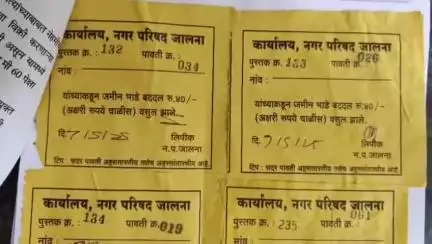 कार्यालय, नगर परिषद जालना
पुस्तक क्र. : 132 पावती क्र. :
034
नांव :
यांच्याकडून जमीन भाडे बददल रु.४०/-
(अक्षरी रूपये चाळीस) वसुल झाले.
दि. 7/5/25 लिपीक
न.प.जालना
टिप : सदर पावती अहस्तातरणीय तसेच अनुत्तरातरणीय आहे.
कार्यालय, नगर परिषद जालना
पुस्तक क्र. : 133 पावती क्र. : 026
नांव :
यांच्याकडून जमीन भाडे बददल रु.४०/-
(अक्षरी रूपये चाळीस) वसुल झाले.
दि. 7/5/25 लिपीक
न.प.जालना
टिप : सदर पावती अहस्तातरणीय तसेच
कार्यालय, नगर परिषद जालना
पुस्तक क्र. : 134 पावती क्र. 019
नांव :
कार्यालय, नगर परिषद जालना
पुस्तक क्र. : 235 पावती क्र. : 061
नांव :